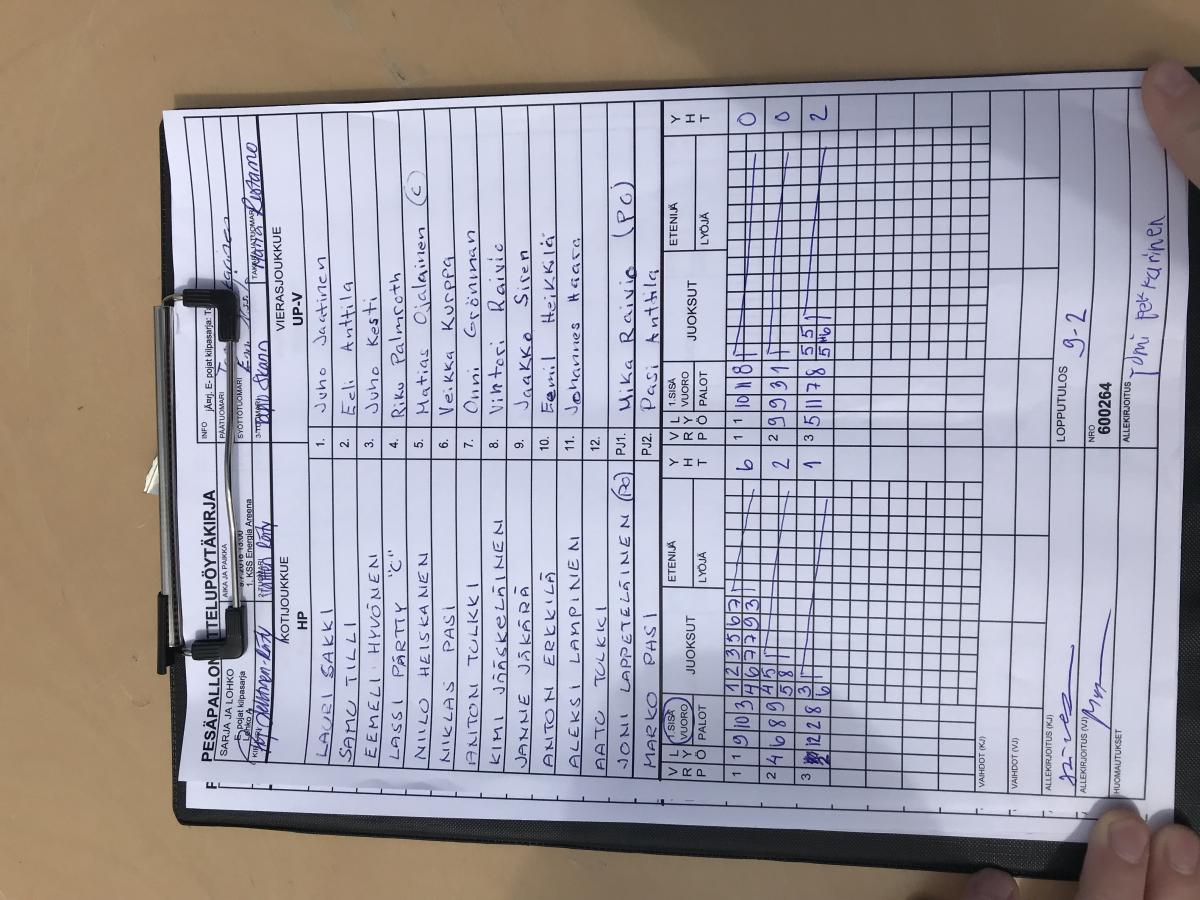 PESÄPALLON OTTELUPÖYTÄKIRJA
SARJA JA LOHKO
E-pojat kilpasarja
Lohko A
AIKA JA PAIKKA
13:00
1. KSS Energia Areena
INFO jÄorj. E- pojat kilpasarja:
PÄÄTUOMARI
SYÖTTÖTUOMARI
3-TUOMARI
KOTIJOUKKUE
HP
VIERASJOUKKUE
UP-V
LAURI SAKKI 1. Juho Jaatinen
SAMU TILLI 2. Eeli Anttila
EEMELI HYVÖNEN 3. Juho Kesti
LASSI PÄRTTY "C" 4. Riku Palmroth
NIILO HEISKANEN 5. Matias Ojalainen (C)
NIKLAS PASI 6. Veikka Kurppa
ANTON TULKKI 7. Onni Gröhman
KIMI JÄÄSKELÄINEN 8. Vihtori Raivio
JANNE JÄKÄRÄ 9. Jaakko Siren
ANTON ERKKILÄ 10. Eemil Heikkilä
ALEKSI LAMPINEN 11. Johannes Haara
AATU TULKKI 12.
JONI LAPPETELÄINEN (PO) PJ1. Mika Raivio (PO)
MARKO PASI PJ2. Pasi Anttila
V L R Y P Ö 1.SISÄ VUORO PALOT JUOKSUT ETENIJÄ LYÖJÄ Y H T V L R Y P Ö 1.SISÄ VUORO PALOT JUOKSUT ETENIJÄ LYÖJÄ Y H T
1 1 9 10 3 1 2 3 5 6 7 6 1 1 10 11 8 0
4 6 7 7 9 3
2 4 6 8 9 4 5 2 2 9 9 3 1 0
5 8
3 12 2 8 3 1 3 5 11 7 8 5 5 2
6 5
VAIHDOT (KJ)
VAIHDOT (VJ)
ALLEKIRJOITUS (KJ)
LOPPUTULOS 9-2
ALLEKIRJOITUS (VJ)
NRO
600264
HUOMAUTUKSET
ALLEKIRJOITUS
Tomi Pekkarinen